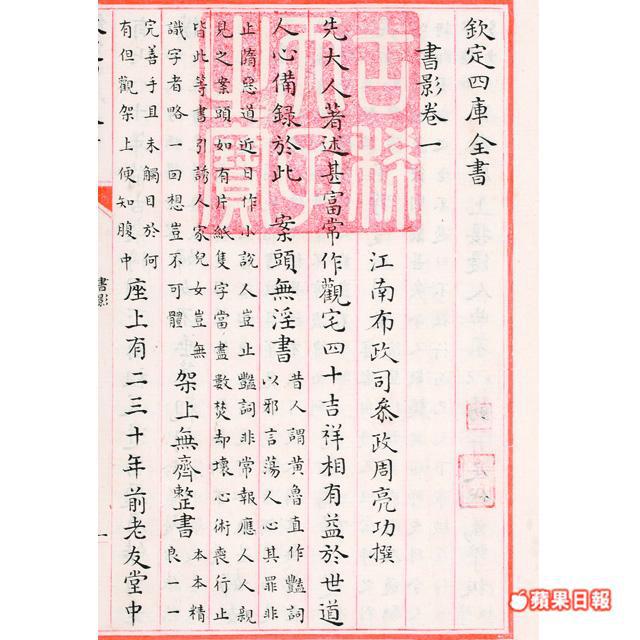 欽定四庫全書
書影卷一
江南布政司叅政周亮功撰
先大人著述甚富常作觀宅四十吉祥相有益於世道
人心備録於此 案頭無淫書
昔人謂黃魯直作豔詞
以邪言蕩人心其罪非
止墮惡道近日作小說人豈止豔詞非常報應人人親
見之案頭如有片紙隻字當盡數焚却壞心術喪行止
皆此等書引誘人家兒女豈無
識字者略一回想豈不可
架上無齊整書
本本精
良一一
完善手且未觸目於何
有但觀架上便知腹中
座上有二三十年前老友堂中
書影
一
古稀
天子
之寶
蘋果日報